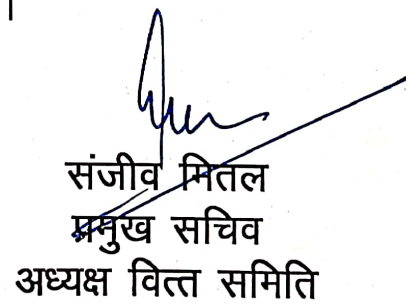 संजीव मितल
प्रमुख सचिव
अध्यक्ष वित्त समिति